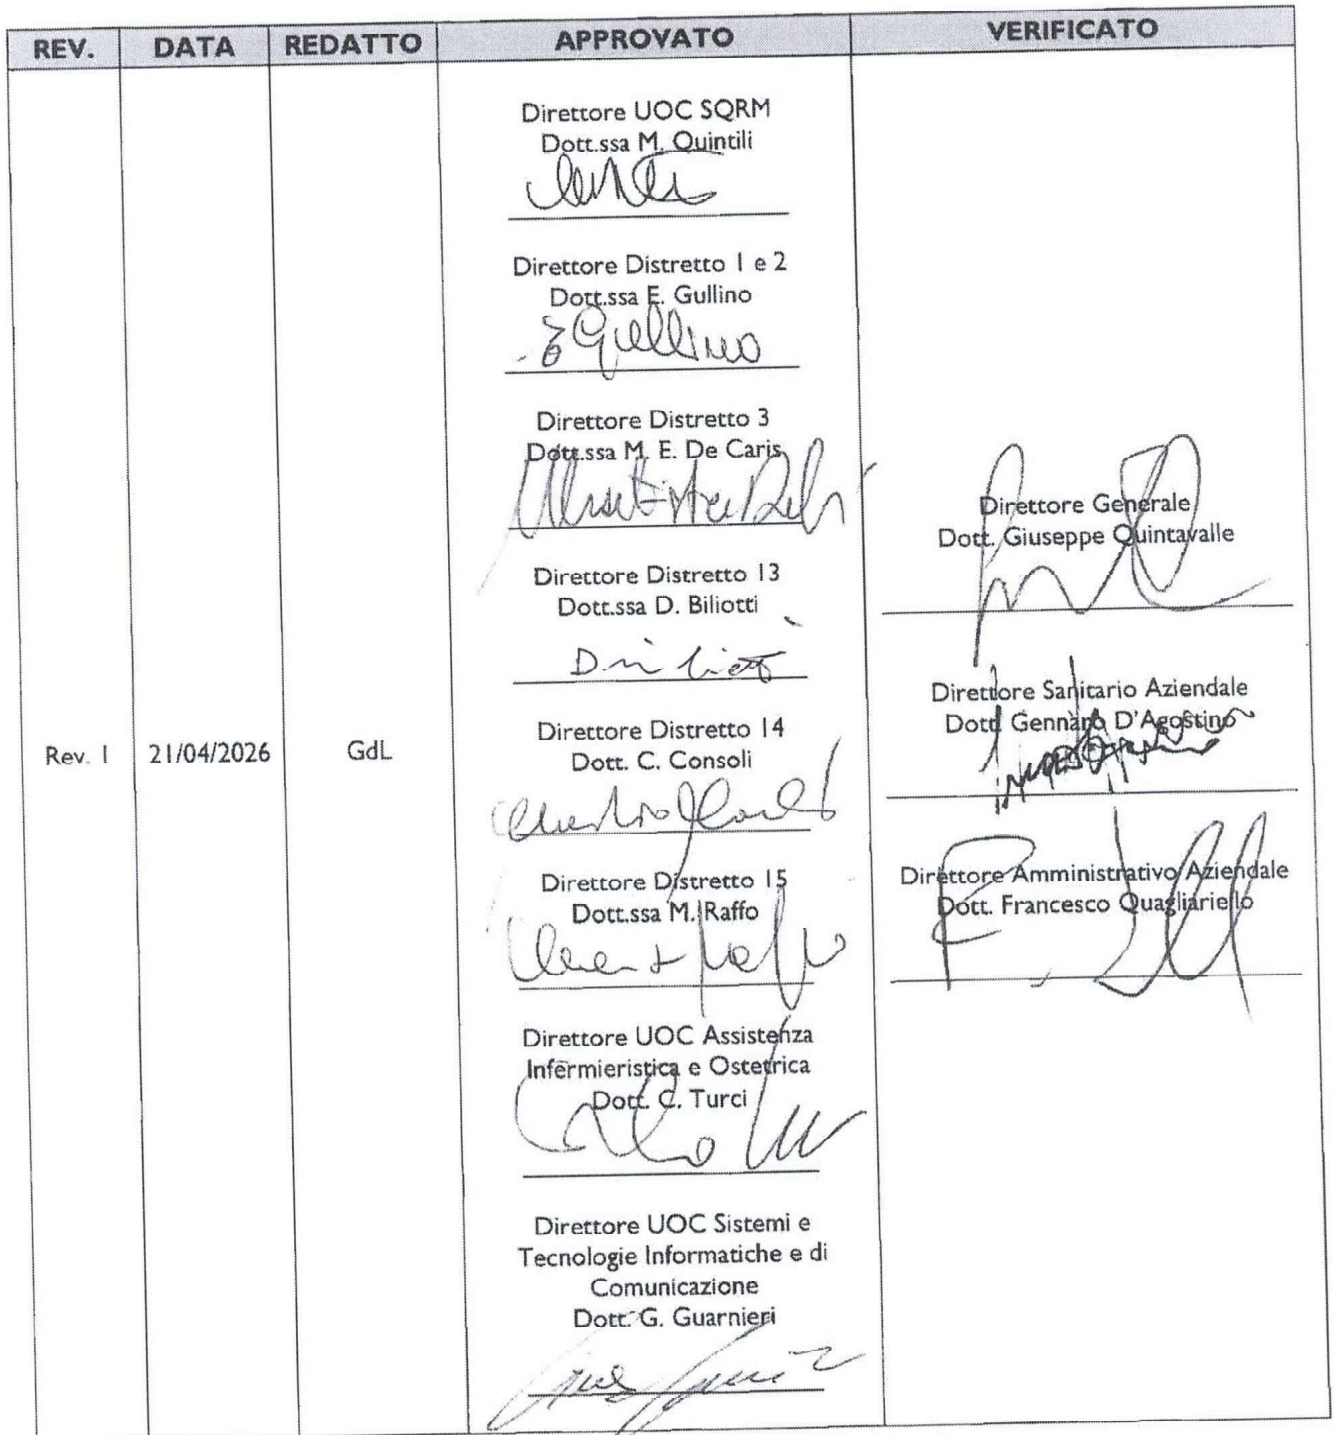 REV. DATA REDATTO APPROVATO VERIFICATO
Direttore UOC SQRM
Dott.ssa M. Quintili
Direttore Distretto 1 e 2
Dott.ssa E. Gullino
E Gullino
Direttore Distretto 3
Dott.ssa M. E. De Caris
Direttore Distretto 13
Dott.ssa D. Biliotti
Direttore Distretto 14
Dott. C. Consoli
Direttore Distretto 15
Dott.ssa M. Raffo
Direttore UOC Assistenza
Infermieristica e Ostetrica
Dott. C. Turci
Direttore UOC Sistemi e
Tecnologie Informatiche e di
Comunicazione
Dott. G. Guarnieri
Rev. 1 21/04/2026 GdL
Direttore Generale
Dott. Giuseppe Quintavalle
Direttore Sanitario Aziendale
Dott. Gennaro D'Agostino
Direttore Amministrativo Aziendale
Dott. Francesco Quagliariello